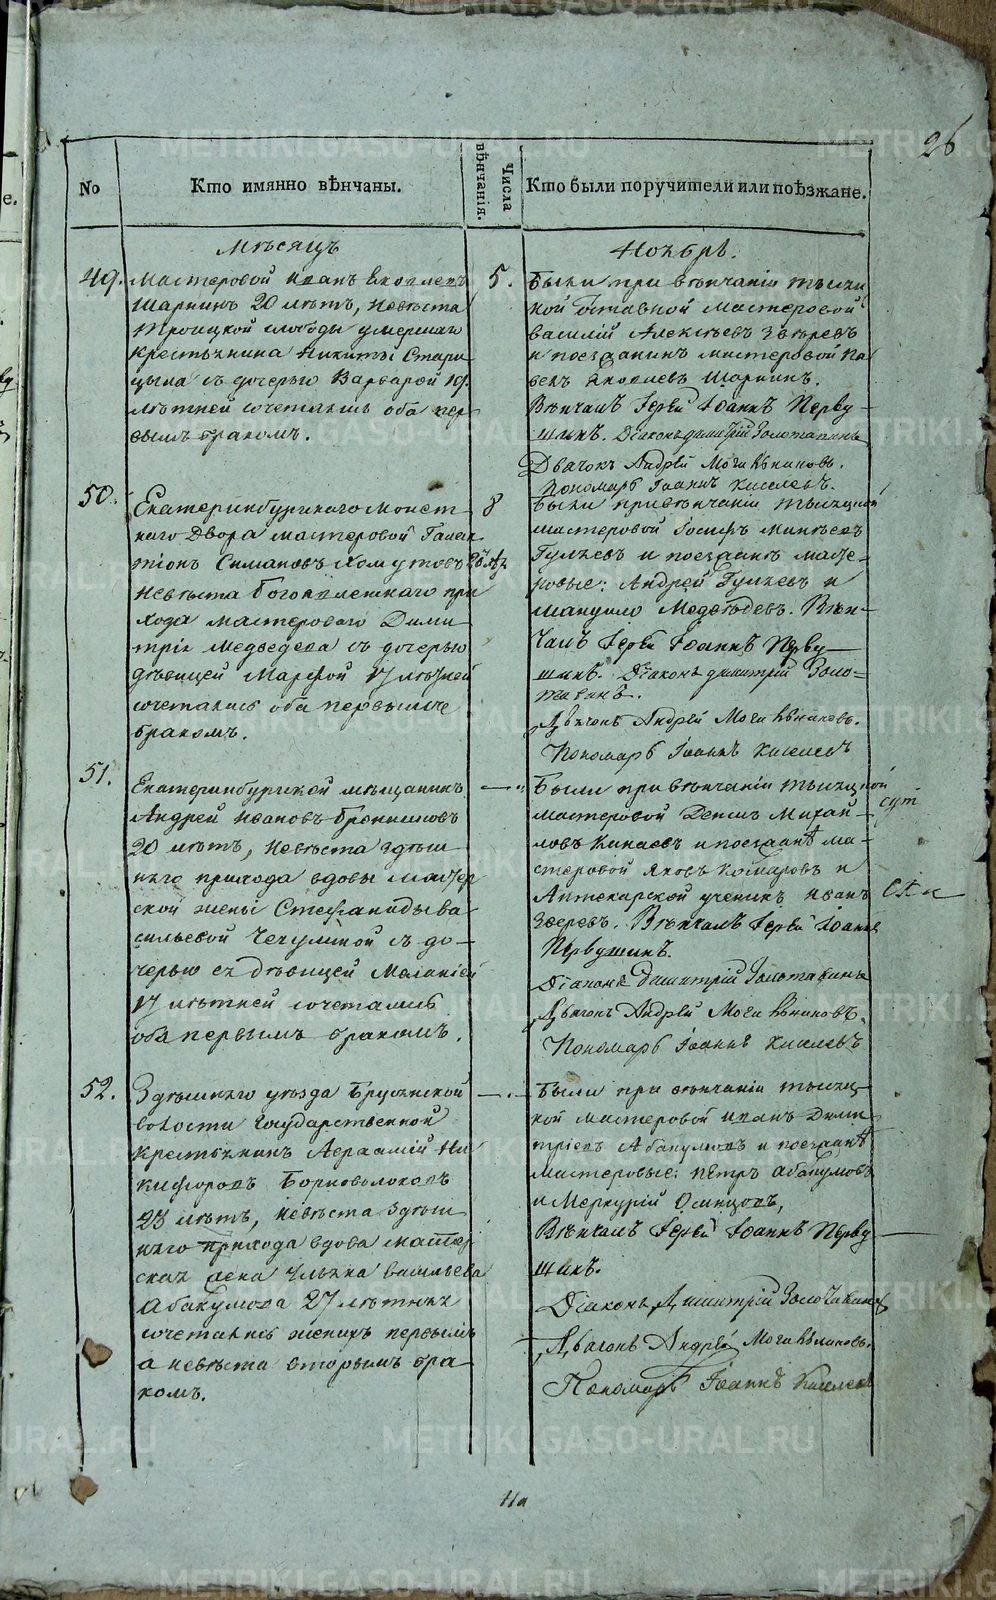 26
№
Кто имянно вѣнчаны.
Числа вѣнчанія.
Кто были поручители или поѣзжане.
Мѣсяцъ
Ноябрь.
49.
Мастеровой Иванъ Яковлевъ
Шарнинъ 20 лѣтъ, невѣста
Троицкой слободы умершаго
крестьянина Никиты Стари
цына съ дочерью Варварой 19.
лѣтней сочетались оба пер
вымъ бракомъ.
5.
Были при вѣнчаніи тысяц
кой отставной мастеровой
Василій Алексѣевъ Звѣревъ
и поезданинъ мастеровой Па
велъ Яковлевъ Шарнинъ.
Вѣнчалъ Іерей Іоаннъ Перву
шинъ. Діаконъ Димитрій Золотавинъ
Дьячокъ Андрей Могильниковъ.
Пономарь Іоаннъ Киселевъ.
50.
Екатеринбургскаго монет
наго Двора мастеровой Галак
тіонъ Симановъ Хомутовъ 20 лѣ
невѣста Богоявленскаго при
хода мастероваго Дими
трія Медведева съ дочерью
дѣвицей Марфой 17 лѣтней
сочетались оба первымъ
бракомъ.
8
Были при вѣнчаніи тысяцкой
мастеровой Іосифъ Минѣевъ
Гуляевъ и поезданѣ масте
ровые: Андрей Гуляевъ и
Мануйло Медвѣдевъ. Вѣн
чалъ Іерей Іоаннъ Перву
шинъ. Діаконъ Димитрій Золо
тавинъ.
Дьячокъ Андрей Могильниковъ.
Пономарь Іоаннъ Киселевъ
51.
Екатеринбургской мѣщанинъ
Андрей Ивановъ
20 лѣтъ, невѣста здѣш
няго прихода вдовы мастер
ской жены Стефаниды Ва
сильевой Чекулиной съ до
черью ея дѣвицей Меланіей
17 лѣтней сочетались
оба первымъ бракомъ.
Были при вѣнчаніи тысяцкой
мастеровой Денисъ Михай
ловъ Кинаевъ и поезданѣ ма
стеровой Яковъ Комаровъ и
Аптекарской ученикъ Иванъ
Зверевъ. Вѣнчалъ Іерей Іоаннъ
Первушинъ.
Діаконъ Димитрій Золотавинъ
Дьячокъ Андрей Могильниковъ.
Пономарь Іоаннъ Киселевъ
52.
Здѣшняго уѣзда Брусянской
волости государственной
крестьянинъ Авраамій Ни
кифоровъ Борноволоковъ
23 лѣтъ, невѣста здѣш
няго прихода вдова мастер
ская жена Ульяна Васильева
Абакумова 27 лѣтняя
сочетались женихъ первымъ
а невѣста вторымъ бра
комъ.
Были при вѣнчаніи тысяц
кой мастеровой Иванъ Дими
тріевъ Абакумовъ и поезданѣ
мастеровые: Петръ Абакумовъ
и Меркурій Осинцовъ,
Вѣнчалъ Іерей Іоаннъ Перву
шинъ.
Діаконъ Димитрій Золотавинъ
Дьячокъ Андрей Могильниковъ.
Пономарь Іоаннъ Киселевъ
METRIKI.GASO-URAL.RU